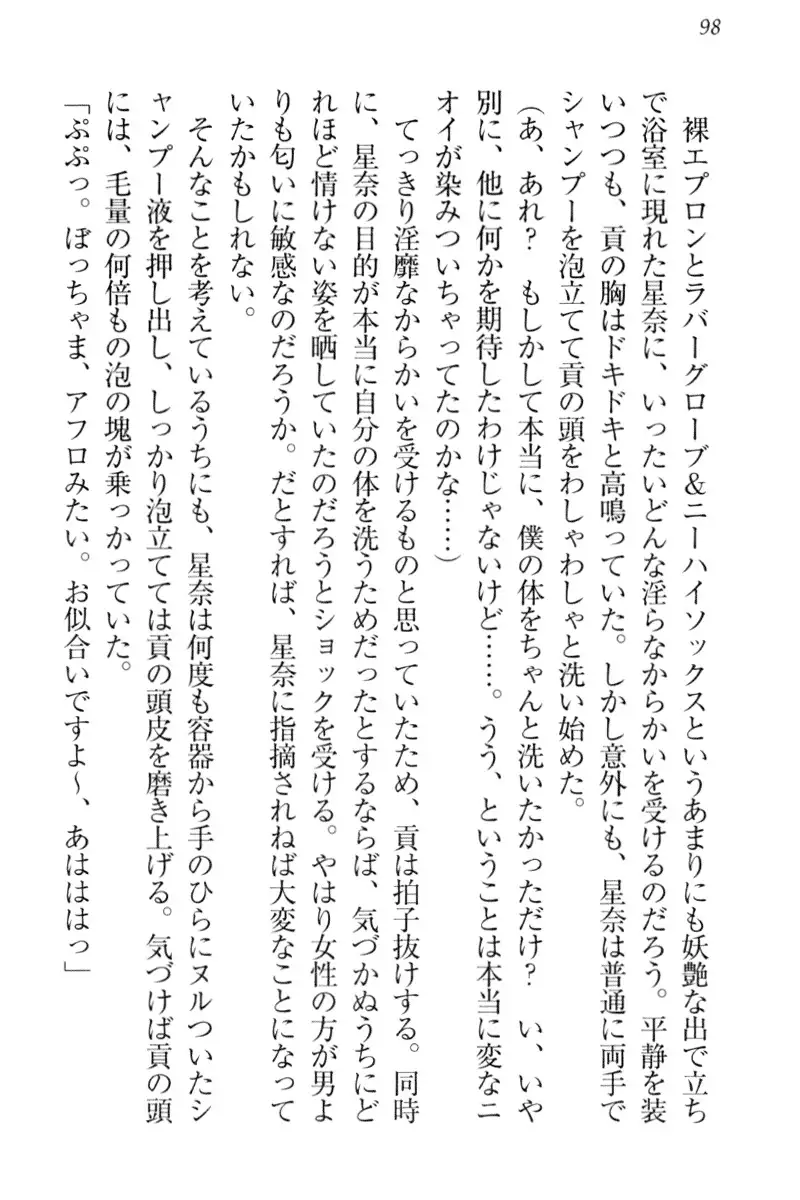 98
裸エプロンとラバーグローブ&ニーハイソックスというあまりにも妖艶な出で立ち
で浴室に現れた星奈に、いったいどんな淫らなからかいを受けるのだろう。平静を装
いつつも、貢の胸はドキドキと高鳴っていた。しかし意外にも、星奈は普通に両手で
シャンプーを泡立てて貢の頭をわしゃわしゃと洗い始めた。
(あ、あれ? もしかして本当に、僕の体をちゃんと洗いたかっただけ? い、いや
別に、他に何かを期待したわけじゃないけど……。うう、ということは本当に変なニ
オイが染みついちゃってたのかな……)
てっきり淫靡なからかいを受けるものと思っていたため、貢は拍子抜けする。同時
に、星奈の目的が本当に自分の体を洗うためだったとするならば、気づかぬうちにど
れほど情けない姿を晒していたのだろうとショックを受ける。やはり女性の方が男よ
りも匂いに敏感なのだろうか。だとすれば、星奈に指摘されねば大変なことになって
いたかもしれない。
そんなことを考えているうちにも、星奈は何度も容器から手のひらにヌルついたシ
ャンプー液を押し出し、しっかり泡立てては貢の頭皮を磨き上げる。気づけば貢の頭
には、毛量の何倍もの泡の塊が乗っかっていた。
「ぷぷっ。ぼっちゃま、アフロみたい。お似合いですよ〜、あはははっ」